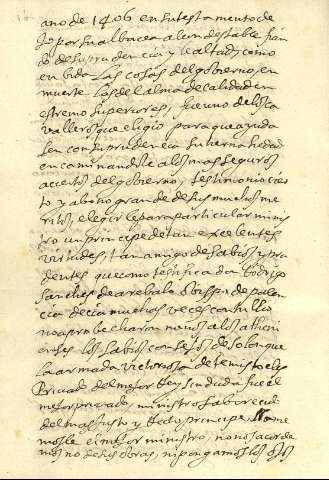 año de 1406 en su testamento de
Jo por su albacea al condestable fián
do de su prudencia y lealtad, como
en bida las cosas del gobierno, en
muerte las del alma de calidad en
estremo superiores, fue uno de los ca
valleros que eligio para que ayuda
sen con su prudencia su tierna hedad
encaminandole a los mas seguros
aciertos del gobierno, testimonio cier
to y abono grande de sus muchos me
ritos, elegirle para particular minis
tro un principe de tan excelentes
virtudes, tan amigo de sabios y pru
dentes que como testifica don Rodrigo
Sanches de arebalo obispo de palen
cia decia muchas veces con tullio
no aprobecharon menos a los athini
enses los sabios consejos de solon que
la armada victoriosa de temistocles
Privado del mejor Rey sin duda fue el
mejor privado, ministro sabio recto
del mas justo y recto principe, llame
mosle el mejor ministro, no nos acorde
mos no de sus obras, ni pongamos los ojos